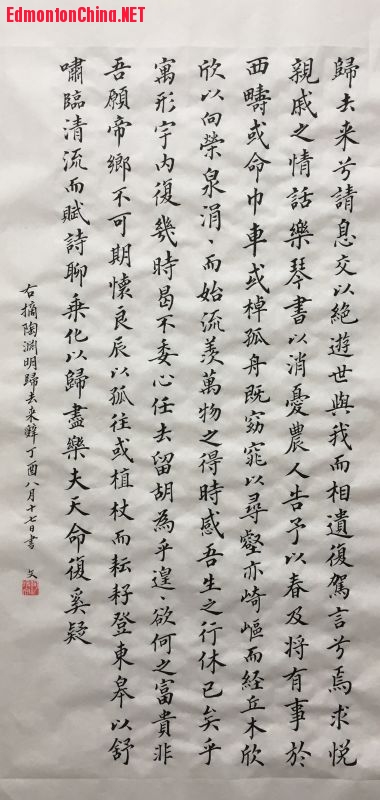 EdmontonChina.NET
歸去来兮請息交以絕遊世與我而相遺復駕言兮焉求悅
親戚之情話樂琴書以消憂農人告予以春及將有事於
西疇或命巾車或棹孤舟既窈窕以尋壑亦崎嶇而経丘木欣
欣以向榮泉涓、而始流羨萬物之得時感吾生之行休已矣乎
寓形宇内復幾時曷不委心任去留胡為乎遑、欲何之富貴非
吾願帝鄉不可期懷良辰以孤往或植杖而耘耔登東皋以舒
嘯臨清流而賦詩聊乘化以歸盡樂夫天命復奚疑
右摘陶淵明歸去来辭丁酉八月十七日書 文